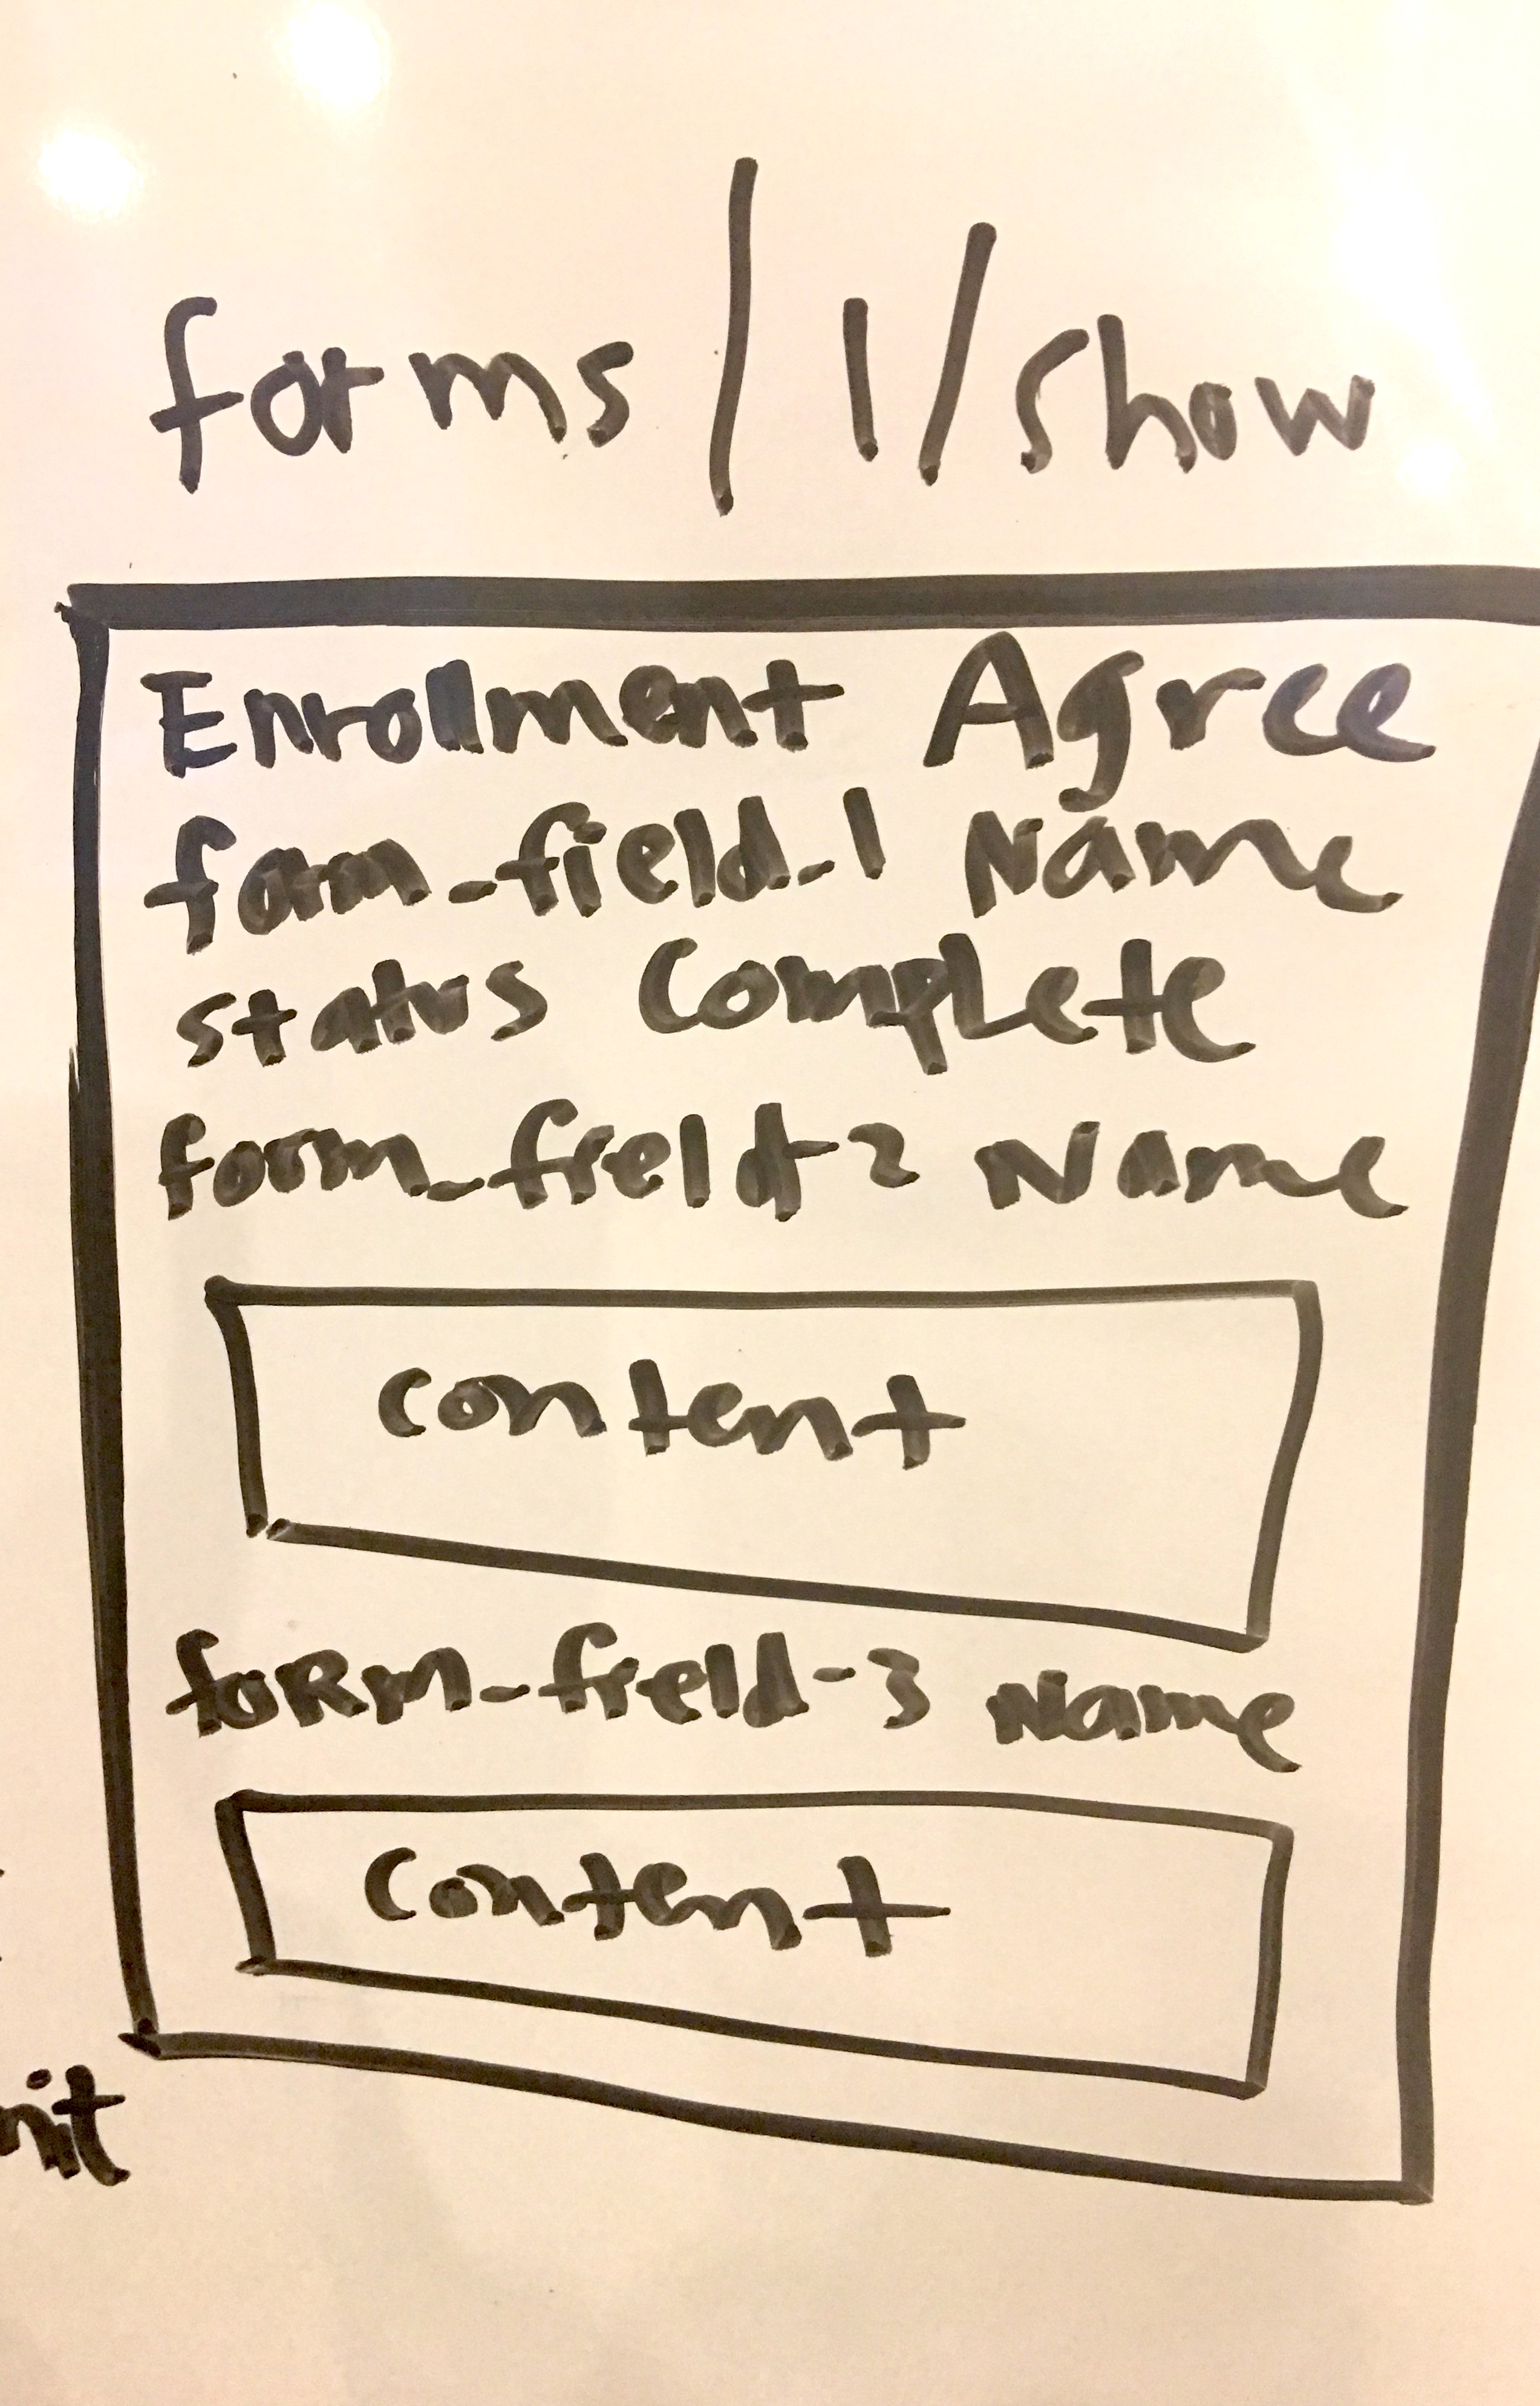 forms/1/show
Enrollment Agree
form_field_1 Name
status Complete
form_field-2 Name
content
foRM-field-3 Name
Content